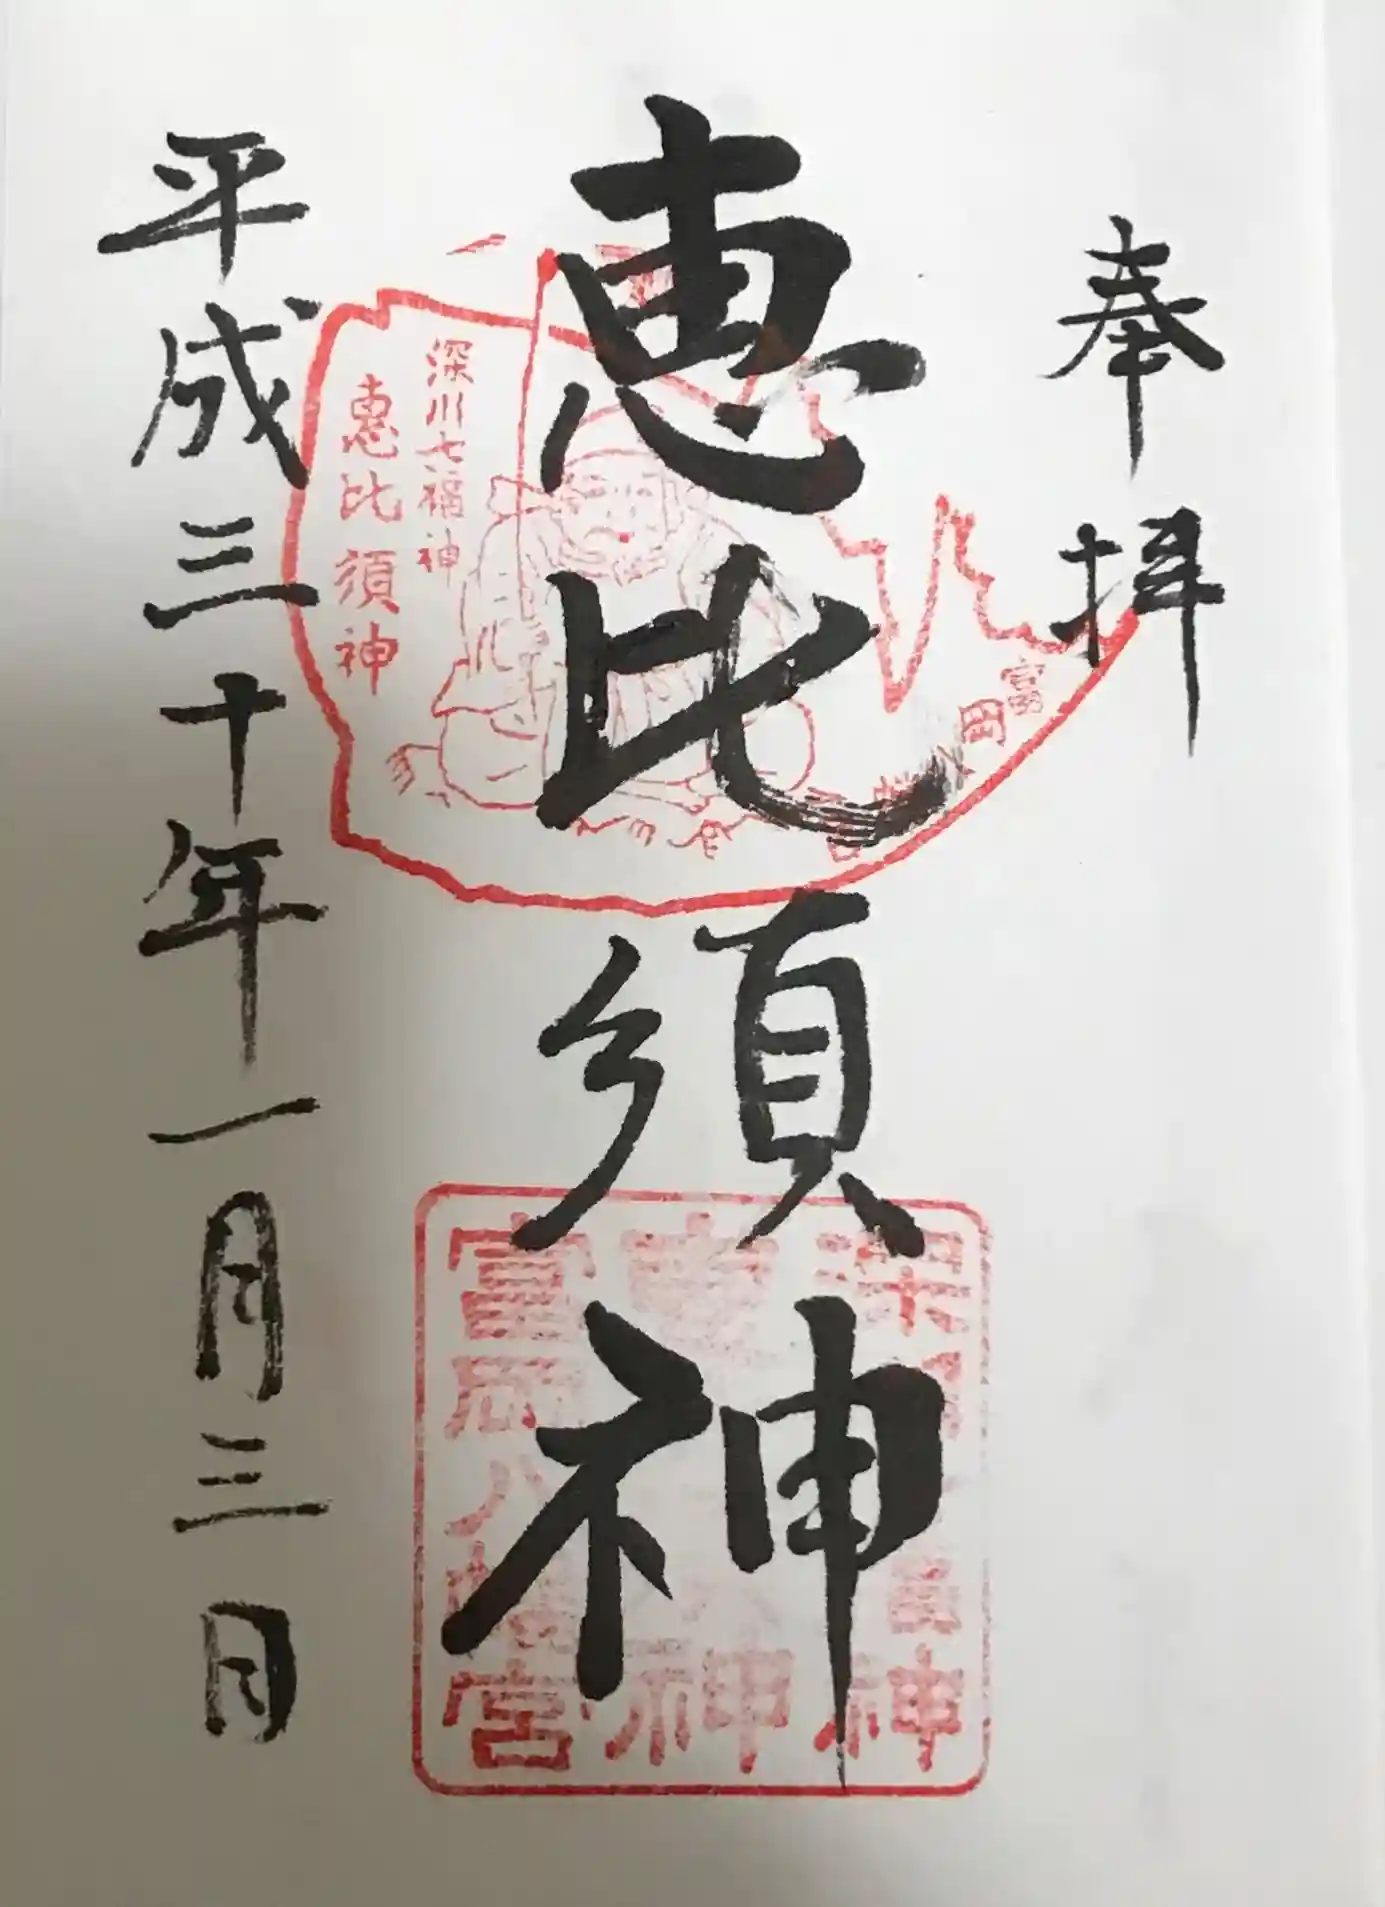 奉拝
恵比須神
平成三十年一月三日
深川七福神
恵比須神
富岡八幡宮
深川七福神
恵比須神
富岡八幡宮